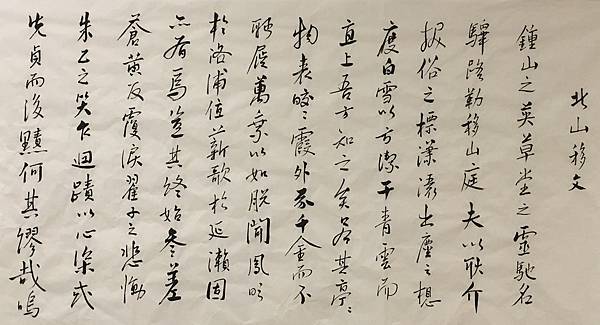 北山移文
鍾山之英草堂之靈馳名
驛路勒移山庭夫以耿介
拔俗之標瀟灑出塵之想
度白雪以方潔干青雲而
直上吾方知之矣若其亭ゝ
物表皎ゝ霞外芥千金而不
眄屣萬乘以如脫聞鳳吹
於洛浦值薪歌於延瀨固
亦有焉豈其終始參差
蒼黃反覆淚翟子之悲慟
朱公之哭乍迴蹟以心染或
先貞而後黷何其謬哉嗚